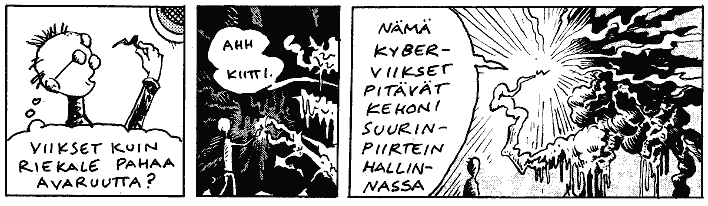 VIIKSET KUIN
RIEKALE PAHAA
AVARUUTTA?
AHH
KIITTI.
NÄMÄ
KYBER-
VIIKSET
PITÄVÄT
KEHONI
SUURIN-
PIIRTEIN
HALLIN-
NASSA